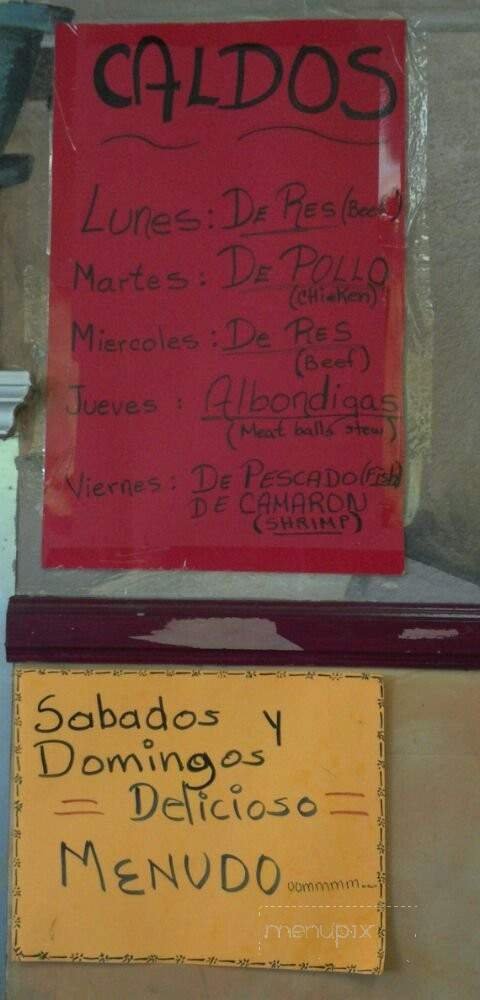 CALDOS
Lunes: De Res (Beef)
Martes: De POLLO
(CHicKen)
Miercoles: De Res
(Beef)
Jueves: Albondigas
(Meat balls stew)
Viernes: DE PESCADO (Fish)
DE CAMARON
(SHRIMP)
Sabados y
Domingos
= Delicioso =
MENUDO uommmm...
menupix